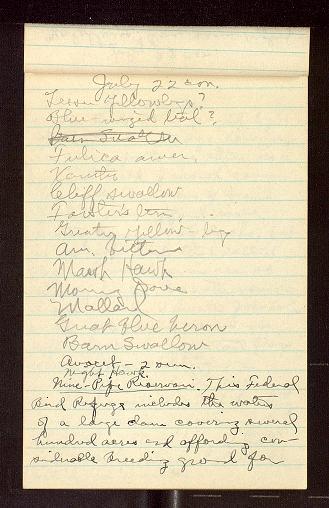 July 22 con.
Lesser Yellowlegs?
Blue-winged Teal?
Barn Swallow
Fulica amer.
Cliff swallow
Forster's tern.
Greater Yellow-legs
Am. Bittern
Marsh Hawk
Mourn. Dove
Mallard
Great Blue heron
Barn Swallow
Avocet -
Night Hawk.
Nine-Pipe Reservoir. This Federal
Bird Refuge includes the waters
of a large dam covering several
hundred acres and affording con-
siderable breeding ground for